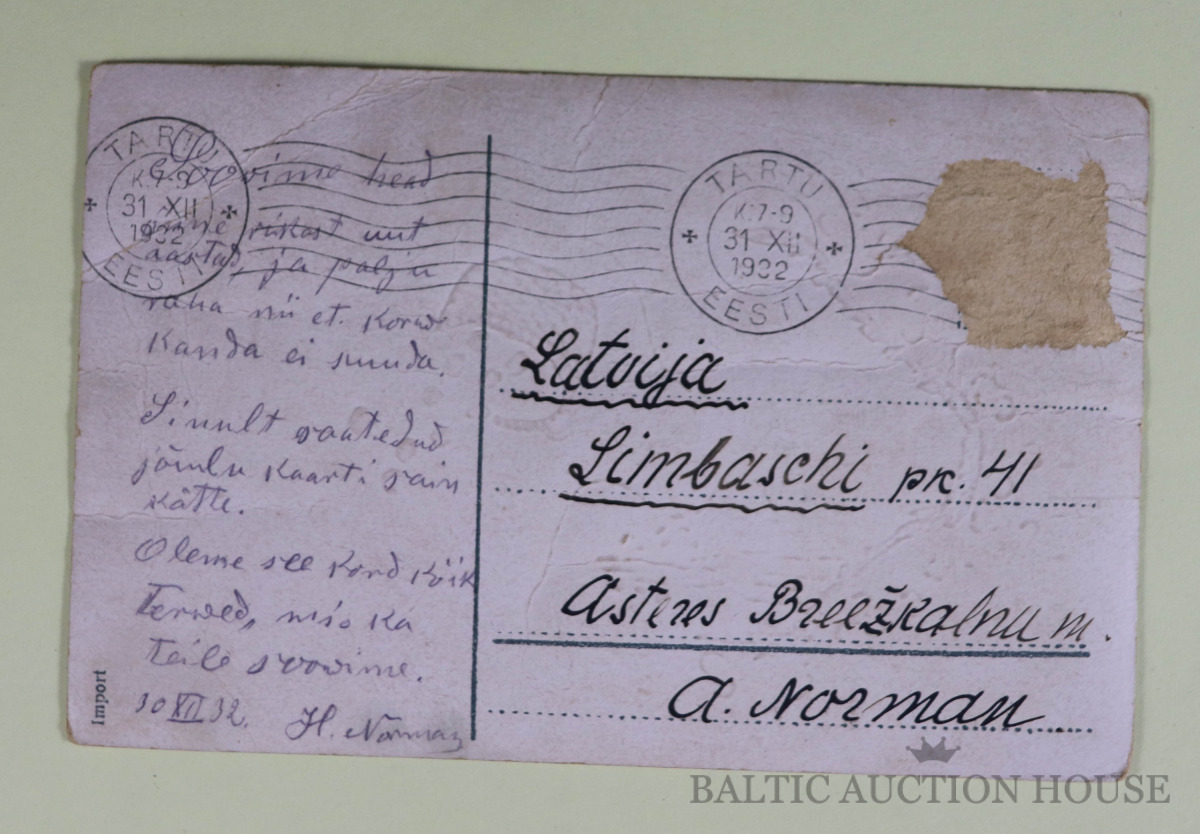 TARTU
K.7-9
31 XII
1932
EESTI
Soovime head
õnne rikast uut
aastad, ja palju
raha nii et. Korwe
Kanda ei suuda.
Sinult saatedud
jõulu kaarti sain
kätte.
Oleme see kord kõik
Terwed, mis ka
teile soowime.
30 XII 32.
H. Norman
Import
TARTU
K.7-9
31 XII
1932
EESTI
Latvija
Limbaschi pk. 41
Asteres Breežkalnu m.
A. Norman
BALTIC AUCTION HOUSE